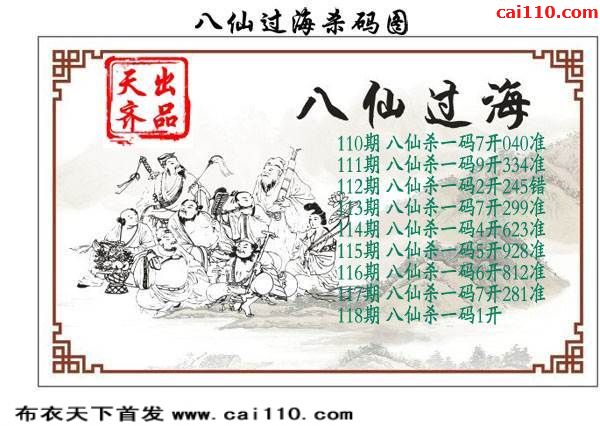 八仙过海杀码图
cai110.com
天齐
出品
八仙过海
110期 八仙杀一码7开040准
111期 八仙杀一码9开334准
112期 八仙杀一码2开245错
113期 八仙杀一码7开299准
114期 八仙杀一码4开623准
115期 八仙杀一码5开928准
116期 八仙杀一码6开812准
117期 八仙杀一码7开281准
118期 八仙杀一码1开
布衣天下首发 www.cai110.com